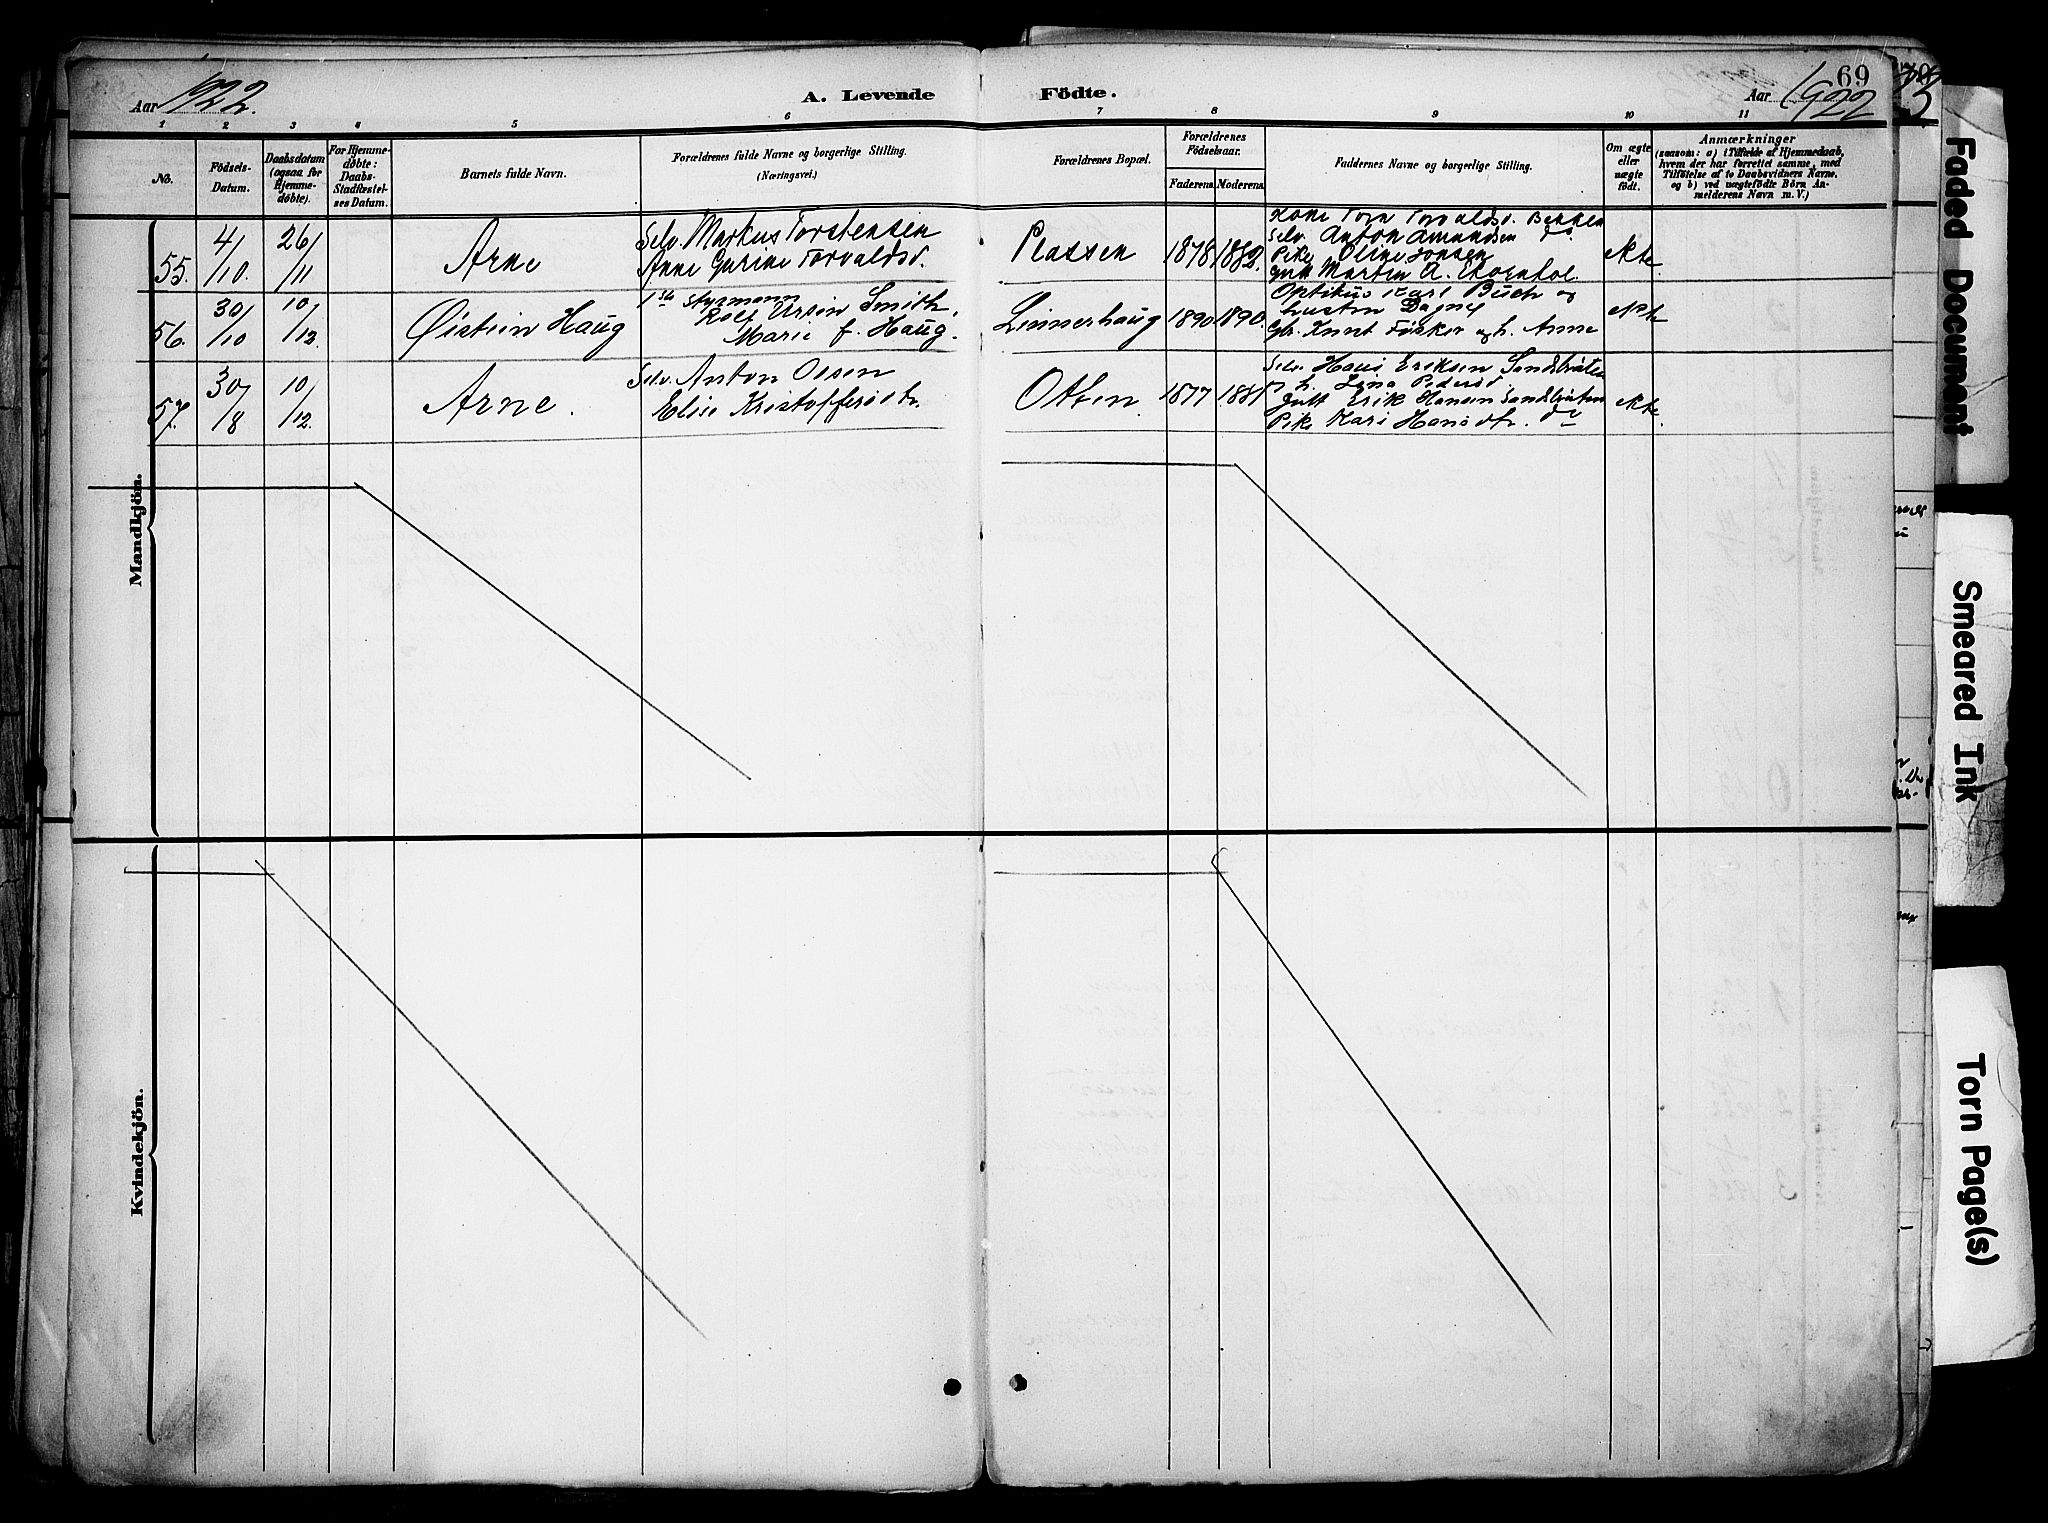 Aar 1922.
A. Levende Födte.
Aar 1922
69
1 2 3 4 5 6 7 8 9 10 11
No.
Födsels-
Datum.
Daabsdatum
(ogsaa for
Hjemme-
døbte).
For Hjemme-
døbte:
Daabs-
Stadfæstel-
ses Datum.
Barnets fulde Navn.
Forældrenes fulde Navne og borgerlige Stilling.
(Næringsvei.)
Forældrenes Bopæl.
Forældrenes
Födselsaar.
Faderens. Moderens.
Faddernes Navne og borgerlige Stilling.
Om ægte
eller
uægte
födt.
Anmærkninger
(saasom: a) i Tilfælde af Hjemmedaab,
hvem der har forrettet samme, med
Tilföielse af to Daabsvidners Navne,
og b) ved uægtefödte Börn An-
melderens Navn m. V.)
Mandkjön.
55. 4/10. 26/11
Arne
Selv. Markus Torstensen
Anne Gurine Torvaldsd.
Plassen
1878 1882.
Kone Torn Torvaldsd. Bakken
Selv. Anton Amundsen do.
Pike Oline Jonsen
Gutt Martin A.
ekte
56. 30/10 10/12.
Øistein Haug
1ste Styrmann
Rolf Ursin Smith,
Marie f. Haug.
Linnerhaug
1890 1890.
Optikus Karl Busch og
hustru Dagny
Knut Fosker og h. Anne
ekte
57. 30/8 10/12.
Arne.
Selv. Anton Olsen
Elise Kristoffersdtr.
Otten
1877 1881
Selv. Hans Eriksen Sandbråten
og h. Lina Pedersd
Gutt Erik Hansen Sandbråten
Pike Kari Hansdtr. do
ekte.
Kvindekjön.
Faded Document
Smeared Ink
Torn Page(s)